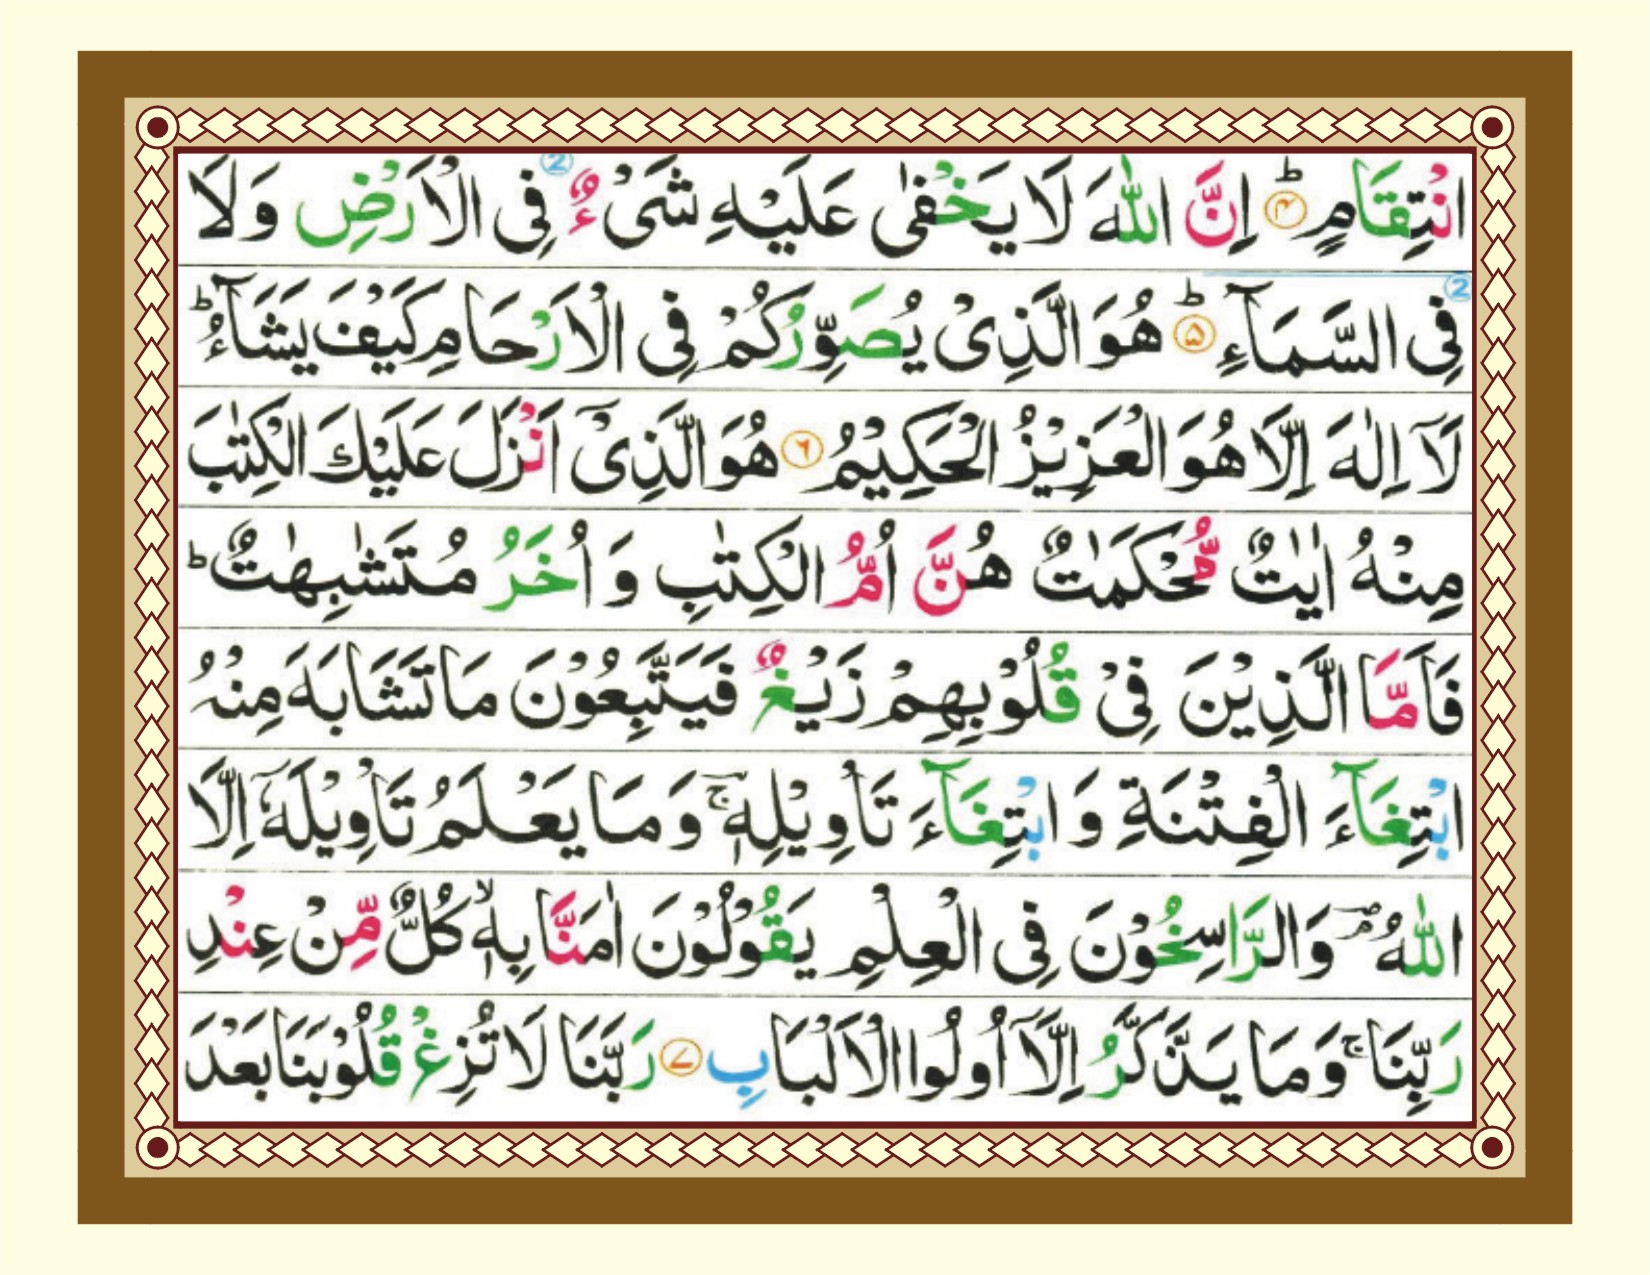 انْتِقَامٍ ؕ ۴ اِنَّ اللّٰهَ لَا يَخْفٰى عَلَيْهِ شَىْءٌ 2 فِى الْاَرْضِ وَلَا
2 فِى السَّمَآءِ ؕ ۵ هُوَ الَّذِىْ يُصَوِّرُكُمْ فِى الْاَرْحَامِ كَيْفَ يَشَآءُ ؕ
لَاۤ اِلٰهَ اِلَّا هُوَ الْعَزِيْزُ الْحَكِيْمُ ۶ هُوَ الَّذِىْۤ اَنْزَلَ عَلَيْكَ الْكِتٰبَ
مِنْهُ اٰيٰتٌ مُّحْكَمٰتٌ هُنَّ اُمُّ الْكِتٰبِ وَ اُخَرُ مُتَشٰبِهٰتٌ ؕ
فَاَمَّا الَّذِيْنَ فِىْ قُلُوْبِهِمْ زَيْغٌ فَيَتَّبِعُوْنَ مَا تَشَابَهَ مِنْهُ
ابْتِغَآءَ الْفِتْنَةِ وَ ابْتِغَآءَ تَاْوِيْلِهٖ ۚ وَ مَا يَعْلَمُ تَاْوِيْلَهٗۤ اِلَّا
اللّٰهُ ۘؔ وَ الرَّاسِخُوْنَ فِى الْعِلْمِ يَقُوْلُوْنَ اٰمَنَّا بِهٖ ۙ كُلٌّ مِّنْ عِنْدِ
رَبِّنَا ۚ وَ مَا يَذَّكَّرُ اِلَّاۤ اُولُوا الْاَلْبَابِ ۷ رَبَّنَا لَا تُزِغْ قُلُوْبَنَا بَعْدَ